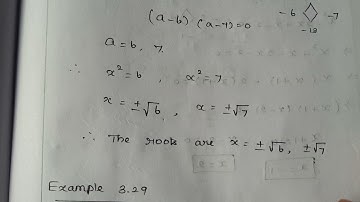 (a-6) (a-7)=0
-6 -7
-13
a=6, 7
∴ x²=6, x²=7
x = ±√6, x = ±√7
∴ The roots are x = ±√6, ±√7
Example 3.29